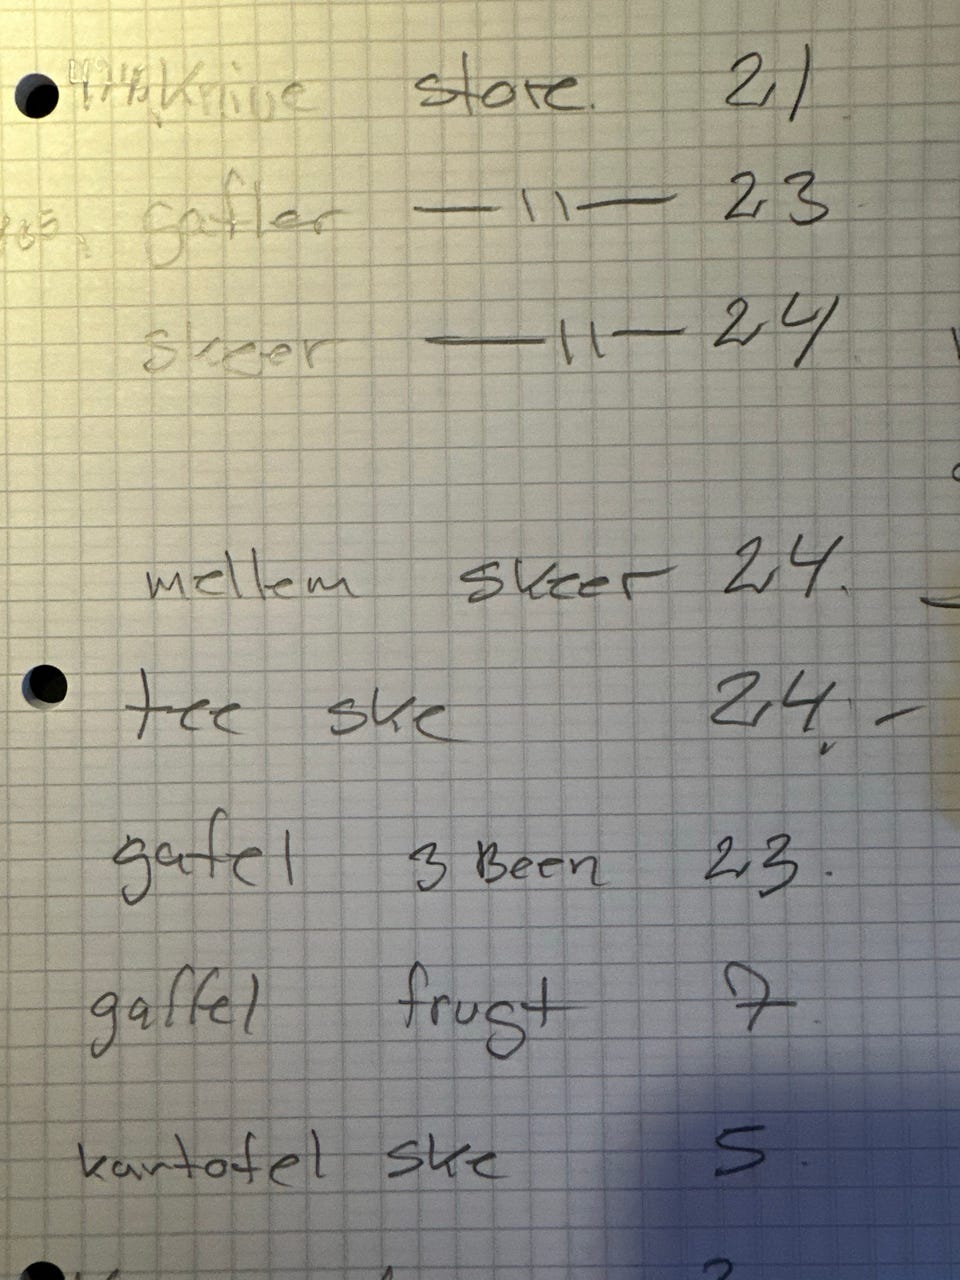 Knive store. 21
gafler —11— 23
skeer —11— 24
mellem skeer 24.
tee ske 24. -
gafel 3 Been 23.
gaffel frugt 7.
kartofel ske 5.